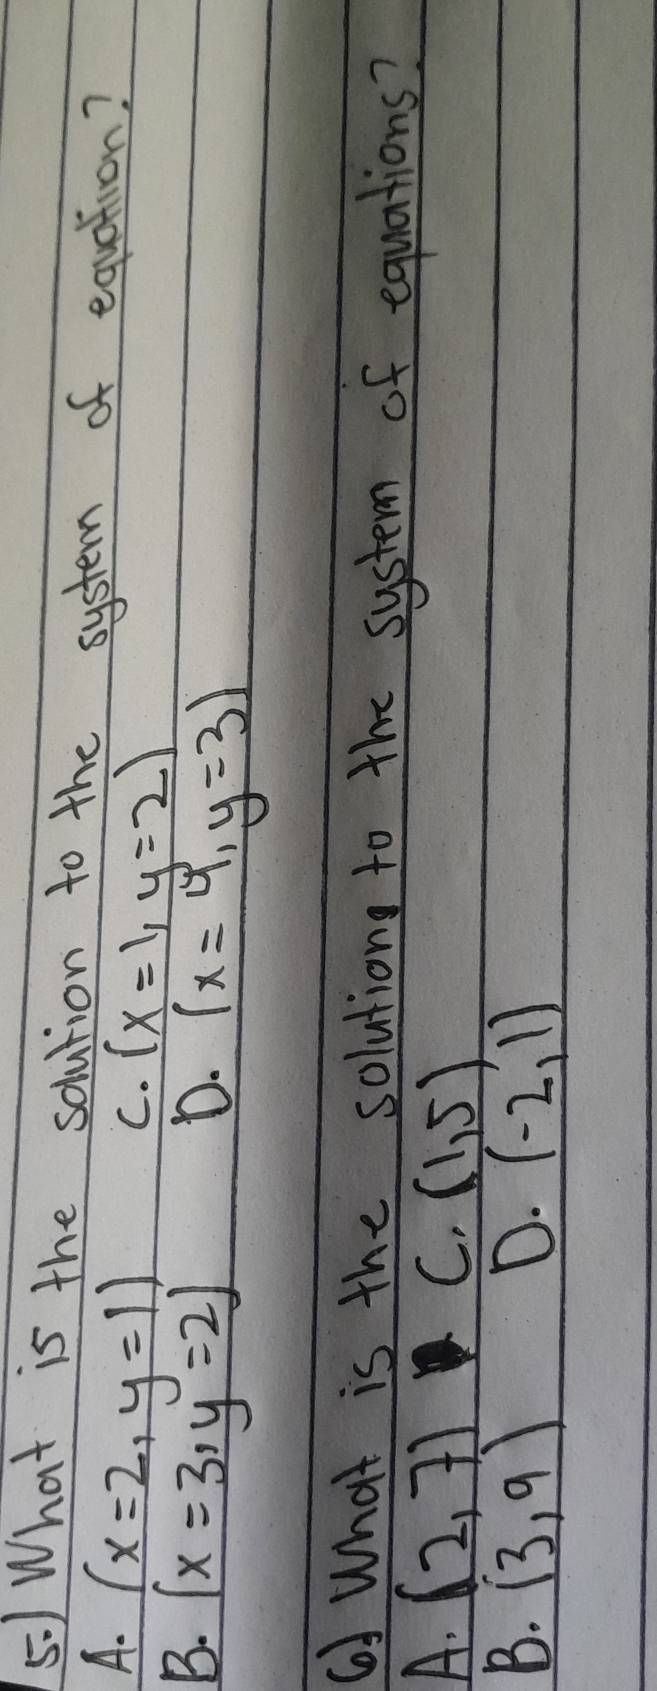 5.) What is the solution to the system of equation?
A. (x=2, y=1) C. (x=1, y=2)
B. (x=3, y=2) D. (x=4, y=3)
6) What is the solution to the system of equations?
A. (2,7) C. (1,5)
B. (3,9) D. (-2,1)